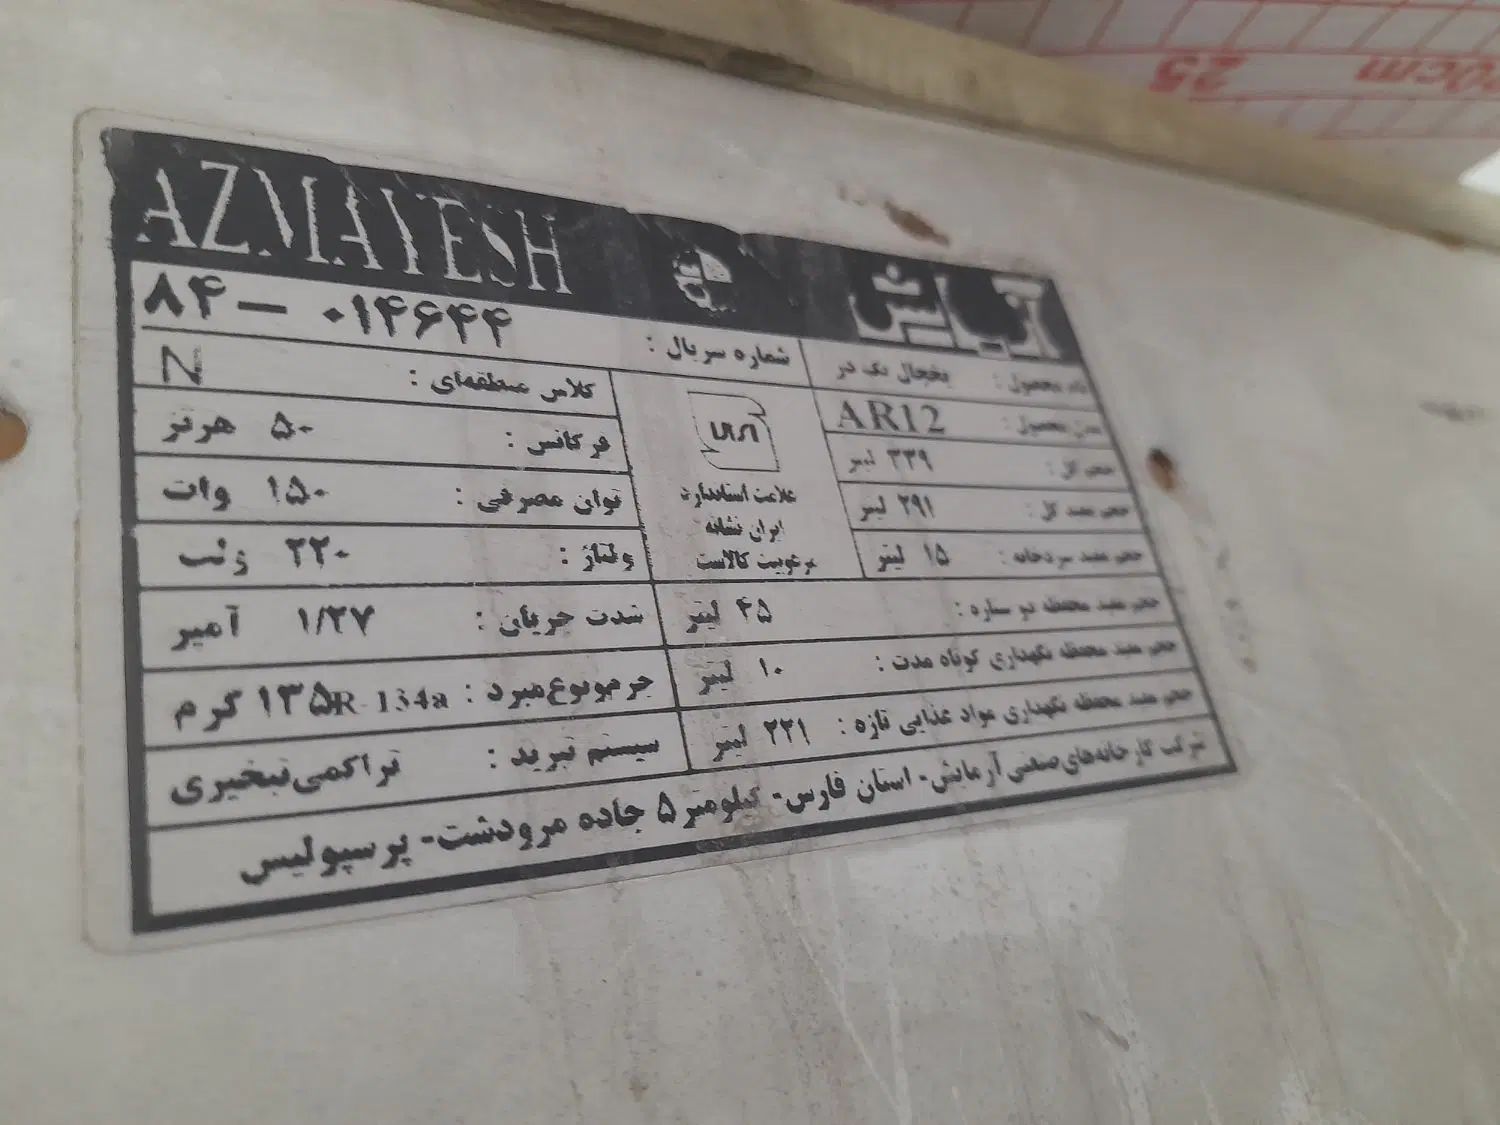 25
AZMAYESH آزمایش
شماره سریال : ۸۴ - ۰۱۴۶۴۴
نام محصول : یخچال یک در
کلاس منطقه‌ای : N
مدل محصول : AR12
فرکانس : ۵۰ هرتز
حجم کل : ۳۳۹ لیتر
توان مصرفی : ۱۵۰ وات
حجم مفید کل : ۲۹۱ لیتر
ولتاژ : ۲۲۰ ولت
حجم مفید سردخانه : ۱۵ لیتر
علامت استاندارد
ایران نشانه
مرغوبیت کالاست
شدت جریان : ۱/۲۷ آمپر
حجم مفید محفظه دو ستاره : ۴۵ لیتر
جرم و نوع مبرد : R-134a ۱۳۵ گرم
حجم مفید محفظه نگهداری کوتاه مدت : ۱۰ لیتر
سیستم تبرید : تراکمی تبخیری
حجم مفید محفظه نگهداری مواد غذایی تازه : ۲۲۱ لیتر
شرکت کارخانه‌های صنعتی آزمایش - استان فارس - کیلومتر ۵ جاده مرودشت - پرسپولیس